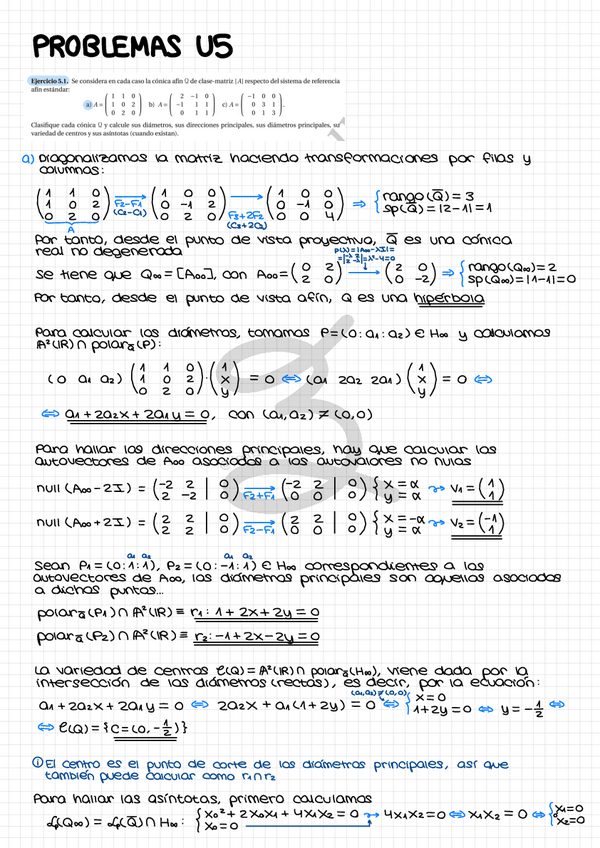 PROBLEMAS U5
Ejercicio 5.1. Se considera en cada caso la cónica afín Q de clase-matriz [A] respecto del sistema de referencia
afín estándar:
a) A = ( 1 1 0 ; 1 0 2 ; 0 2 0 ) b) A = ( 2 -1 0 ; -1 1 1 ; 0 1 1 ) c) A = ( -1 0 0 ; 0 3 1 ; 0 1 3 ).
Clasifique cada cónica Q y calcule sus diámetros, sus direcciones principales, sus diámetros principales, su
variedad de centros y sus asíntotas (cuando existan).
a) Diagonalizamos la matriz haciendo transformaciones por filas y
columnas:
( 1 1 0 ; 1 0 2 ; 0 2 0 ) A → F2-F1 (C2-C1) ( 1 0 0 ; 0 -1 2 ; 0 2 0 ) → F3+2F2 (C3+2C2) ( 1 0 0 ; 0 -1 0 ; 0 0 4 ) ⇒ { rango(Q̅) = 3 ; sp(Q̅) = |2-1| = 1
Por tanto, desde el punto de vista proyectivo, Q̅ es una cónica
real no degenerada
Se tiene que Q∞ = [A∞], con A∞ = ( 0 2 ; 2 0 ) → P(λ) = |A∞-λI| = |-λ 2 ; 2 -λ| = λ²-4 = 0 ( 2 0 ; 0 -2 ) ⇒ { rango(Q∞) = 2 ; sp(Q∞) = |1-1| = 0
Por tanto, desde el punto de vista afín, Q es una hipérbola
Para calcular los diámetros, tomamos P=(0:a1:a2) ∈ H∞ y calculamos
A²(ℝ) ∩ polarQ̅(P):
(0 a1 a2) ( 1 1 0 ; 1 0 2 ; 0 2 0 ) · ( 1 ; x ; y ) = 0 ⇔ (a1 2a2 2a1) ( 1 ; x ; y ) = 0 ⇔
⇔ a1 + 2a2x + 2a1y = 0, con (a1,a2) ≠ (0,0)
Para hallar las direcciones principales, hay que calcular los
autovectores de A∞ asociados a los autovalores no nulos
null(A∞-2I) = ( -2 2 | 0 ; 2 -2 | 0 ) → F2+F1 ( -2 2 | 0 ; 0 0 | 0 ) { x = α ; y = α ⇝ v1 = ( 1 ; 1 )
null(A∞+2I) = ( 2 2 | 0 ; 2 2 | 0 ) → F2-F1 ( 2 2 | 0 ; 0 0 | 0 ) { x = -α ; y = α ⇝ v2 = ( -1 ; 1 )
a1 a2 a1 a2
Sean P1 = (0:1:1), P2 = (0:-1:1) ∈ H∞ correspondientes a los
autovectores de A∞, los diámetros principales son aquellos asociados
a dichos puntos...
polarQ̅(P1) ∩ A²(ℝ) ≡ r1: 1 + 2x + 2y = 0
polarQ̅(P2) ∩ A²(ℝ) ≡ r2: -1 + 2x - 2y = 0
La variedad de centros C(Q) = A²(ℝ) ∩ polarQ̅(H∞), viene dada por la
intersección de los diámetros (rectas), es decir, por la ecuación:
a1 + 2a2x + 2a1y = 0 ⇔ 2a2x + a1(1+2y) = 0 ⇔ (a1,a2) ≠ (0,0) { x = 0 ; 1+2y = 0 ⇔ y = -1/2 ⇔
⇔ C(Q) = {C = (0, -1/2)}
ⓘ El centro es el punto de corte de los diámetros principales, así que
también puede calcular como r1 ∩ r2
Para hallar las asíntotas, primero calculamos
𝓛(Q∞) = 𝓛(Q̅) ∩ H∞: { x0² + 2x0x1 + 4x1x2 = 0 ; x0 = 0 → 4x1x2 = 0 ⇔ x1x2 = 0 ⇔ { x1 = 0 ; x2 = 0